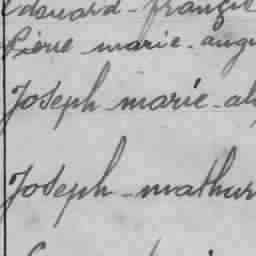 Edouard - françois
Pierre marie - augu
Joseph marie - al
Joseph - mathur